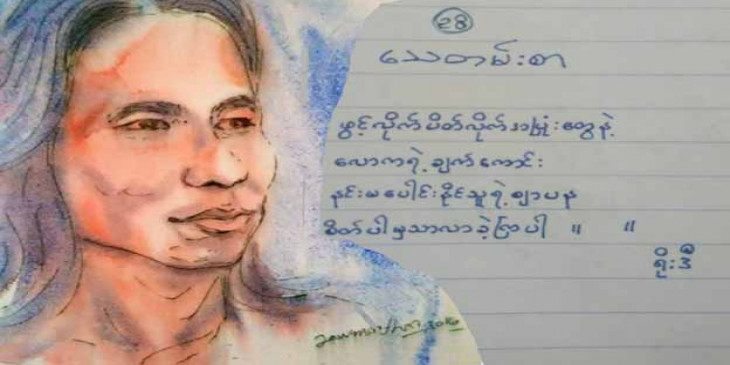 ၁၉
သေတမ်းစာ
ဖွင့်လိုက် ပိတ်လိုက် အပြုံးတွေနဲ့
လောကရဲ့ ချက်ကောင်း
နင်းမပေါင်းနိုင်သူရဲ့ ဈာပန
စိတ်ပါမှသာလာခဲ့ကြပါ ။ ။
ရိုးဒီ